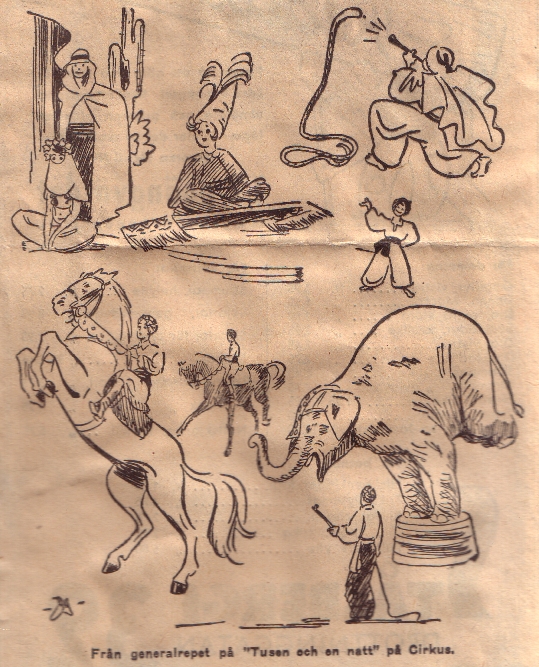 Från generalrepet på "Tusen och en natt" på Cirkus.